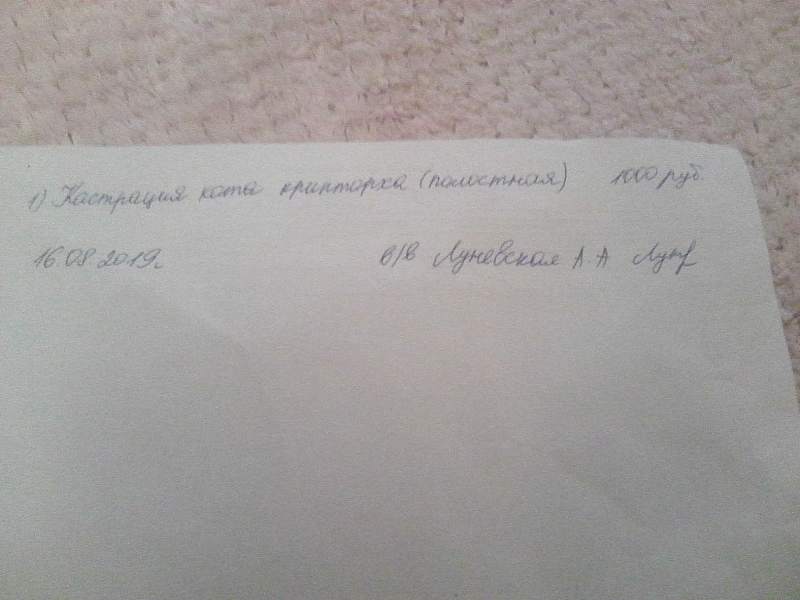 1) Кастрация кота крипторха (полостная) 1000 руб.
16.08.2019г. в/в Луневская А.А Лун